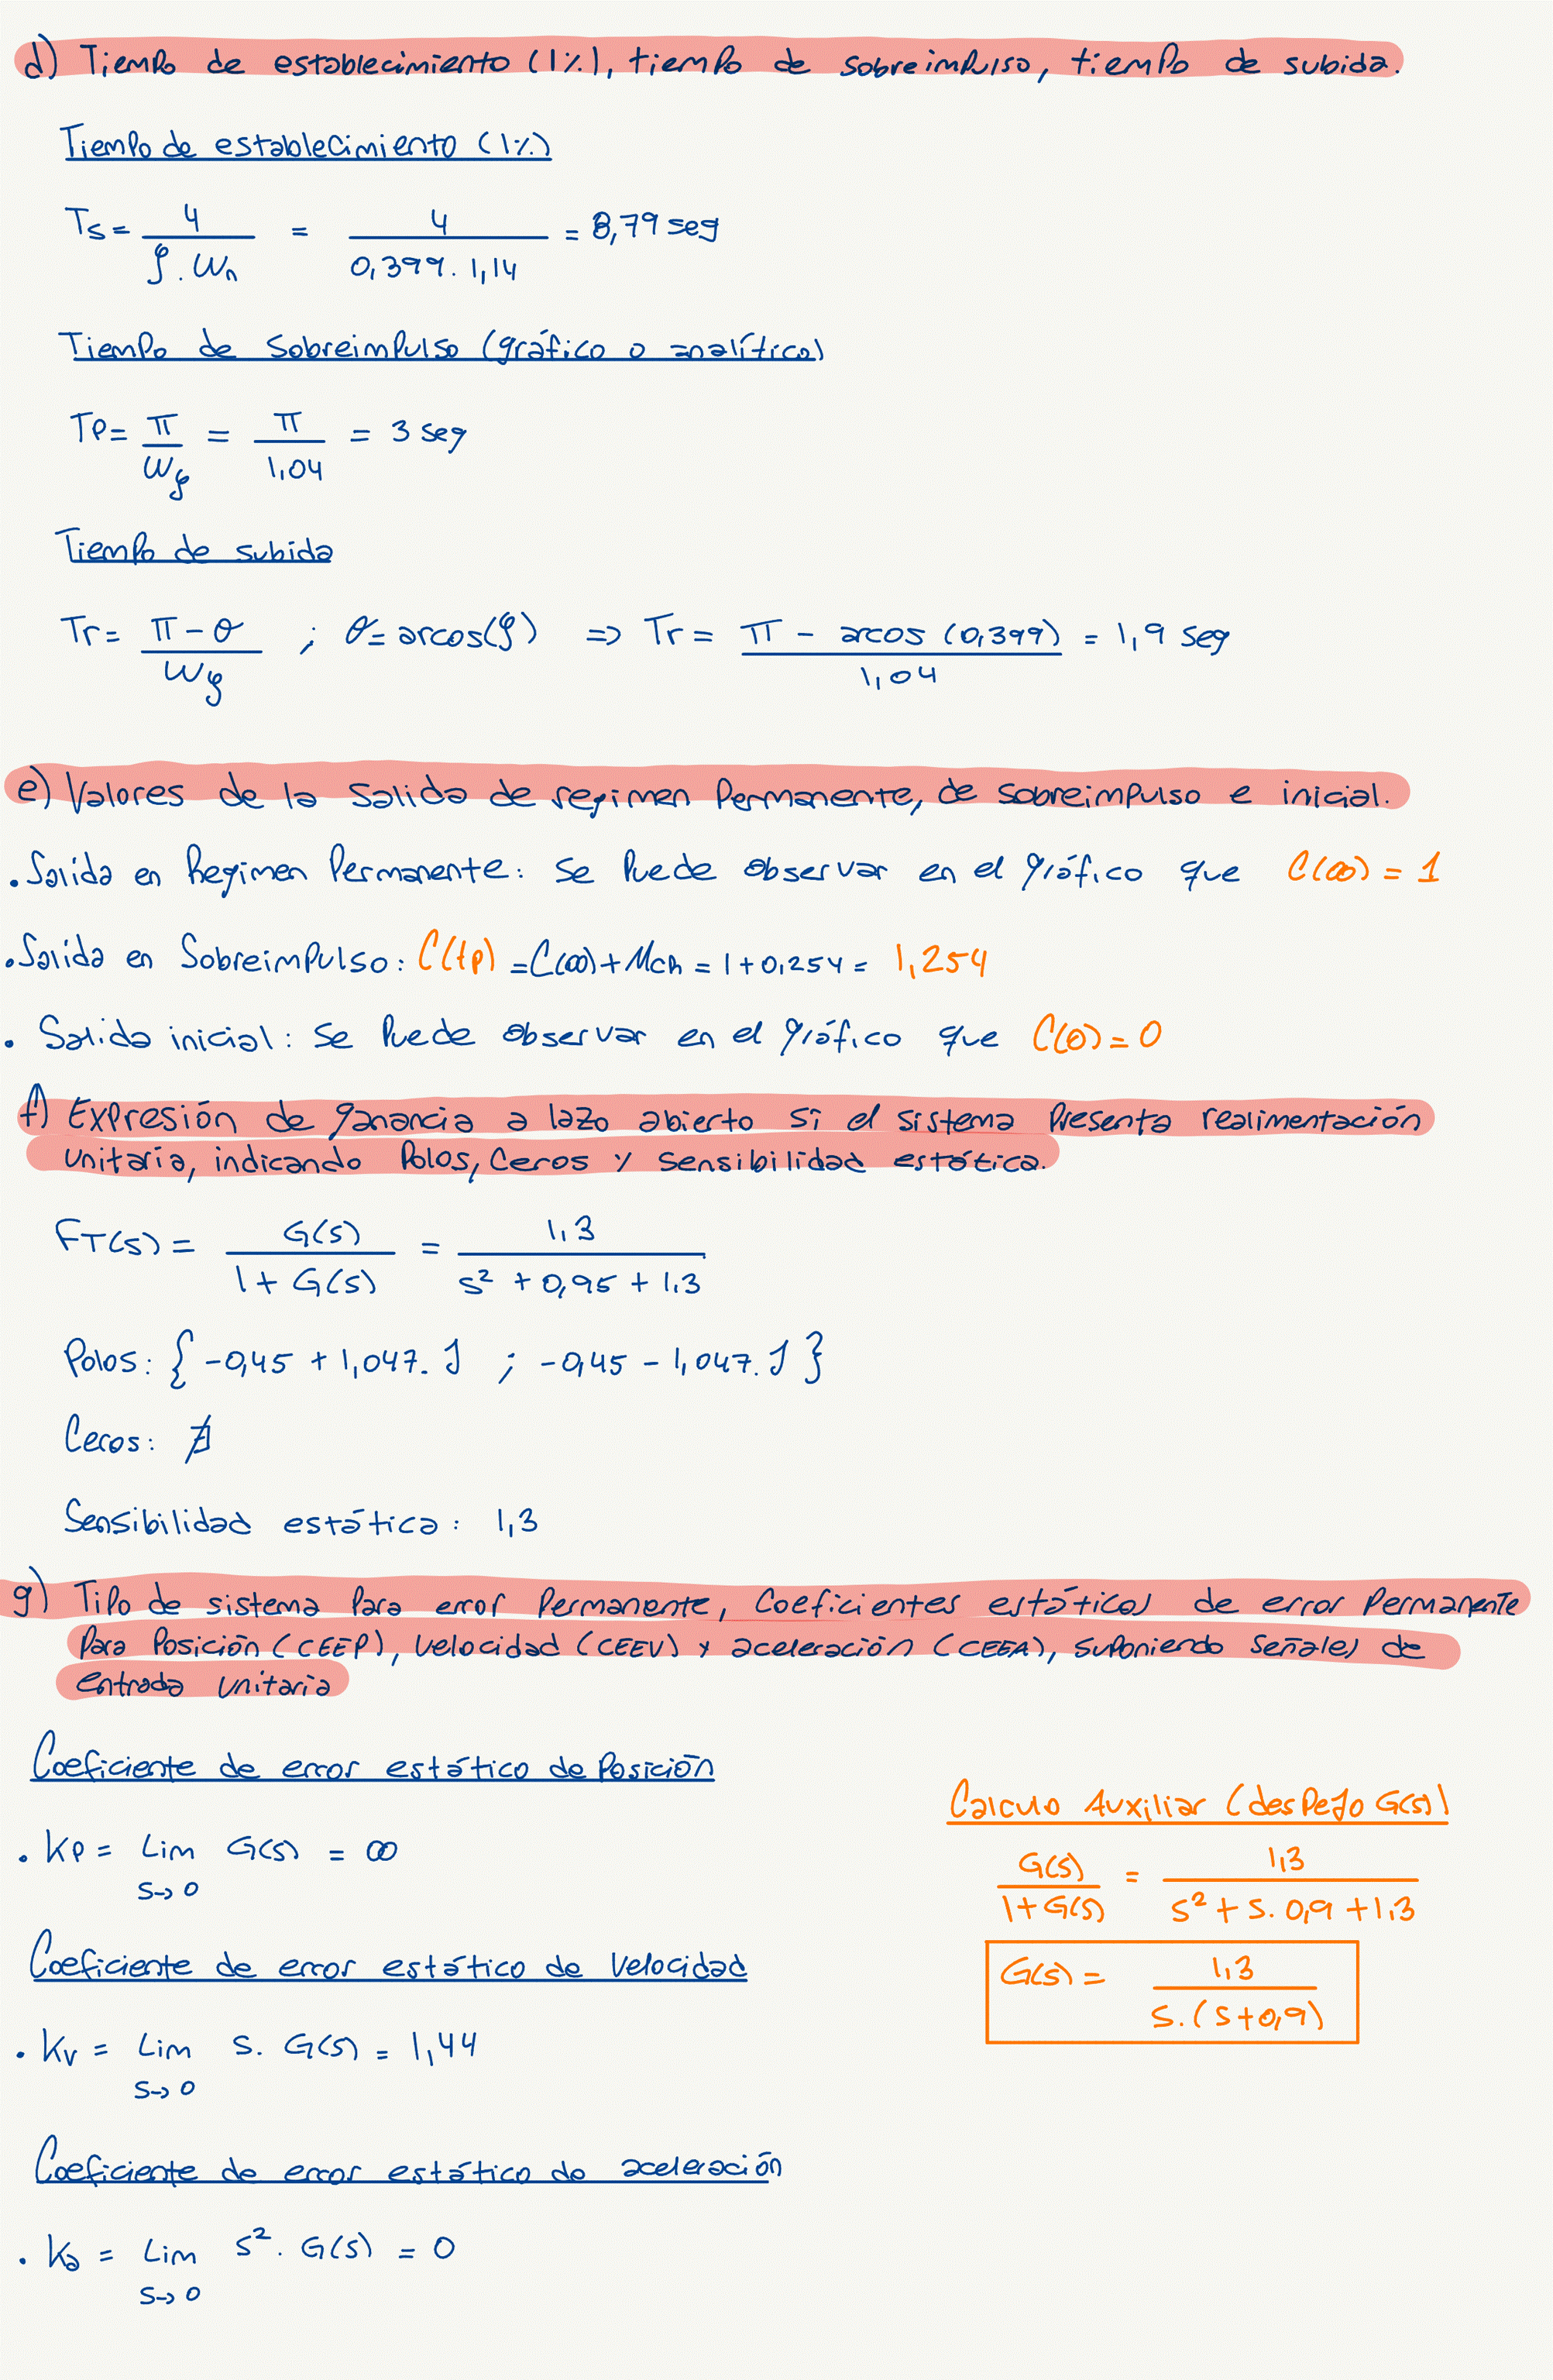 d) Tiempo de establecimiento (1%), tiempo de sobreimpulso, tiempo de subida.
Tiempo de establecimiento (1%)
Ts = 4 / ζ.Wn = 4 / 0,399.1,14 = 8,79 seg
Tiempo de sobreimpulso (gráfico o analítico)
Tp = π / Wζ = π / 1,04 = 3 seg
Tiempo de subida
Tr = π - θ / Wζ ; θ = arcos(ζ) => Tr = π - arcos (0,399) / 1,04 = 1,9 seg
e) Valores de la salida de regimen permanente, de sobreimpulso e inicial.
. Salida en Regimen Permanente: se puede observar en el gráfico que C(∞) = 1
. Salida en Sobreimpulso: C(tp) = C(∞) + Mcn = 1 + 0,254 = 1,254
. Salida inicial: se puede observar en el gráfico que C(0) = 0
f) Expresión de ganancia a lazo abierto si el sistema presenta realimentación
unitaria, indicando Polos, Ceros y sensibilidad estática.
FT(s) = G(s) / 1 + G(s) = 1,3 / s² + 0,9s + 1,3
Polos: { -0,45 + 1,047.J ; -0,45 - 1,047.J }
Ceros: ∄
Sensibilidad estática: 1,3
g) Tipo de sistema para error permanente, Coeficientes estáticos de error permanente
para Posición (CEEP), velocidad (CEEV) y aceleración (CEEA), suponiendo señales de
entrada unitaria
Coeficiente de error estático de Posición
. Kp = Lim s→0 G(s) = ∞
Coeficiente de error estático de Velocidad
. Kv = Lim s→0 s. G(s) = 1,44
Coeficiente de error estático de aceleración
. Ka = Lim s→0 s². G(s) = 0
Calculo Auxiliar (despejo G(s))
G(s) / 1 + G(s) = 1,3 / s² + s. 0,9 + 1,3
G(s) = 1,3 / s.(s+0,9)